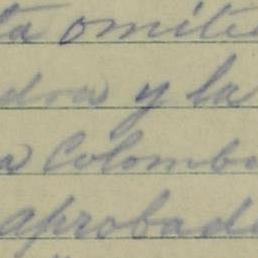 ta omiti
dora y la
a Colombo
aprobad